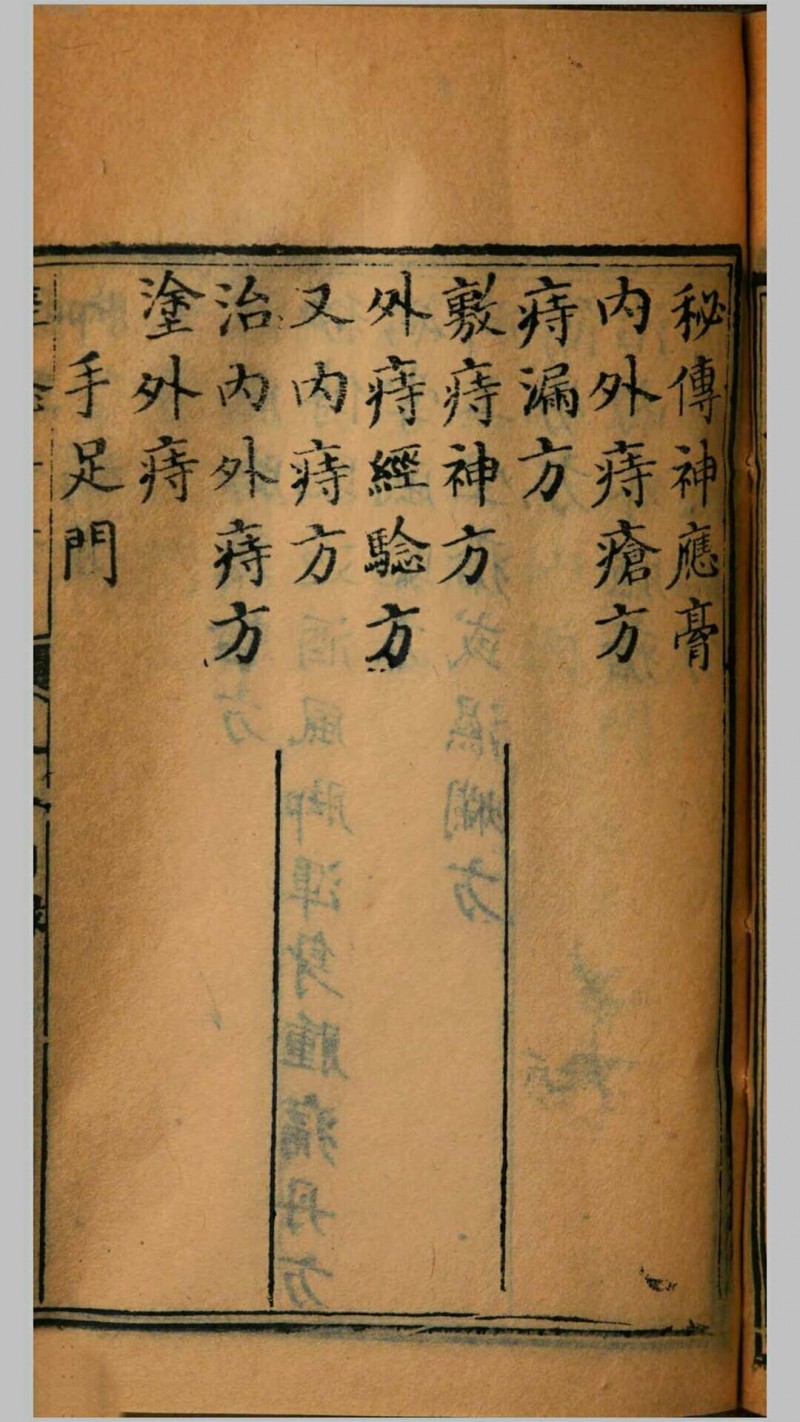 秘傳神應膏
內外痔瘡方
痔漏方
敷痔神方
外痔經騐方
又內痔方
治內外痔方
塗外痔
手足門